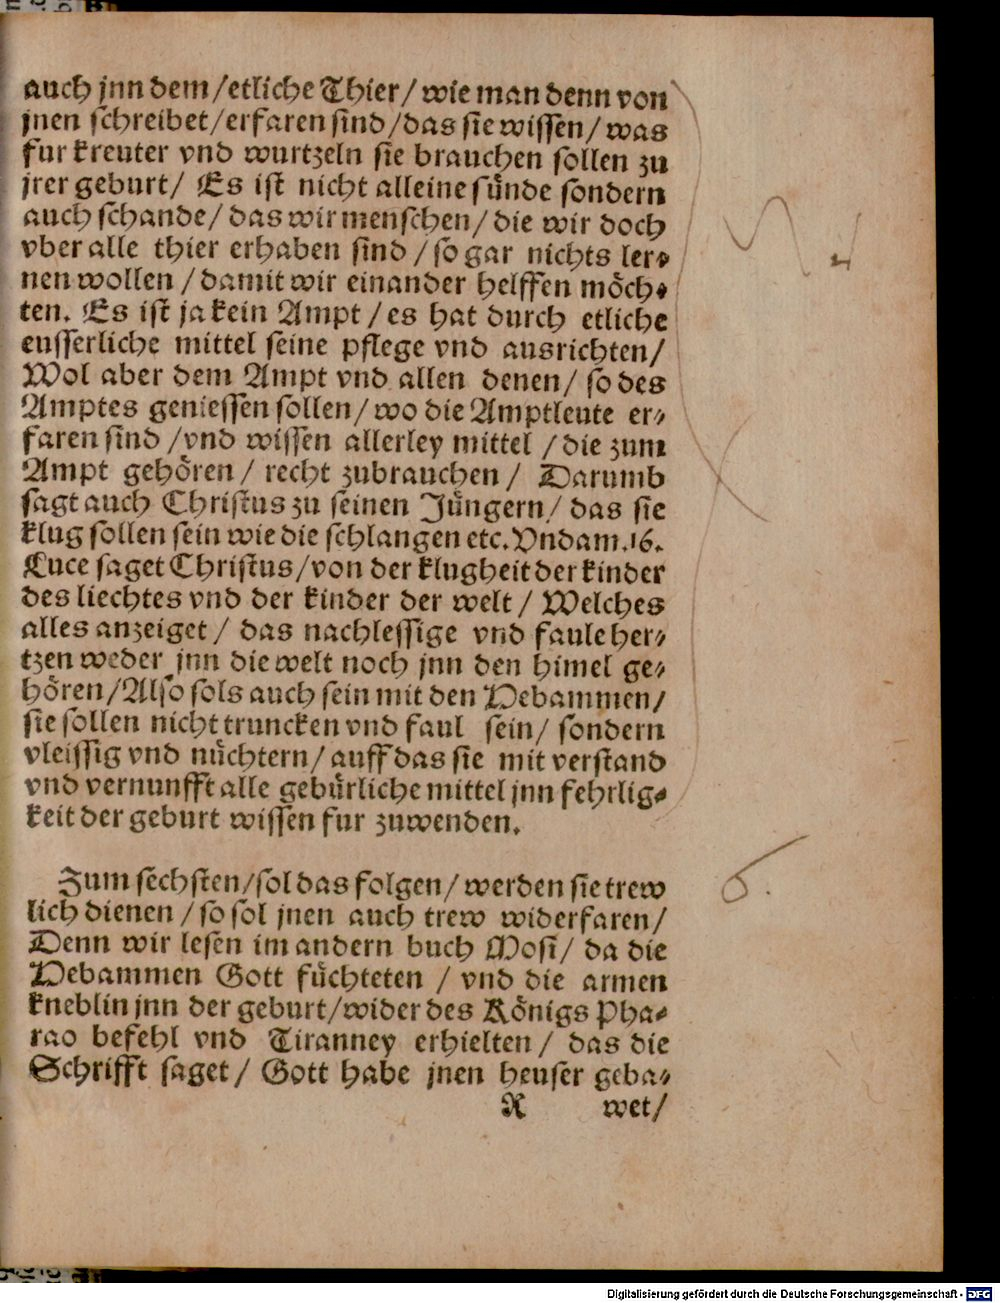 auch jnn dem / etliche Thier / wie man denn von
jnen schreibet / erfaren sind / das sie wissen / was
fur kreuter vnd wurtzeln sie brauchen sollen zu
jrer geburt / Es ist nicht alleine sünde sondern
auch schande / das wir menschen / die wir doch
vber alle thier erhaben sind / so gar nichts ler⸗
nen wollen / damit wir einander helffen möch⸗
ten. Es ist ja kein Ampt / es hat durch etliche
eusserliche mittel seine pflege vnd ausrichten /
Wol aber dem Ampt vnd allen denen / so des
Amptes geniessen sollen / wo die Amptleute er⸗
faren sind / vnd wissen allerley mittel / die zum
Ampt gehören / recht zubrauchen / Darumb
sagt auch Christus zu seinen Jüngern / das sie
klug sollen sein wie die schlangen etc. Vnd am .16.
Luce saget Christus / von der klugheit der kinder
des liechtes vnd der kinder der welt / Welches
alles anzeiget / das nachlessige vnd faule her⸗
tzen weder jnn die welt noch jnn den himel ge⸗
hören / Also sols auch sein mit den Hebammen /
sie sollen nicht truncken vnd faul sein / sondern
vleissig vnd nüchtern / auff das sie mit verstand
vnd vernunfft alle gebürliche mittel jnn fehrlig⸗
keit der geburt wissen fur zuwenden.
Zum sechsten / sol das folgen / werden sie trew
lich dienen / so sol jnen auch trew widerfaren /
Denn wir lesen im andern buch Mosi / da die
Hebammen Gott füchteten / vnd die armen
kneblin jnn der geburt / wider des Königs Pha⸗
rao befehl vnd Tiranney erhielten / das die
Schrifft saget / Gott habe jnen heuser geba⸗
R wet /
6.
Digitalisierung gefördert durch die Deutsche Forschungsgemeinschaft - DFG